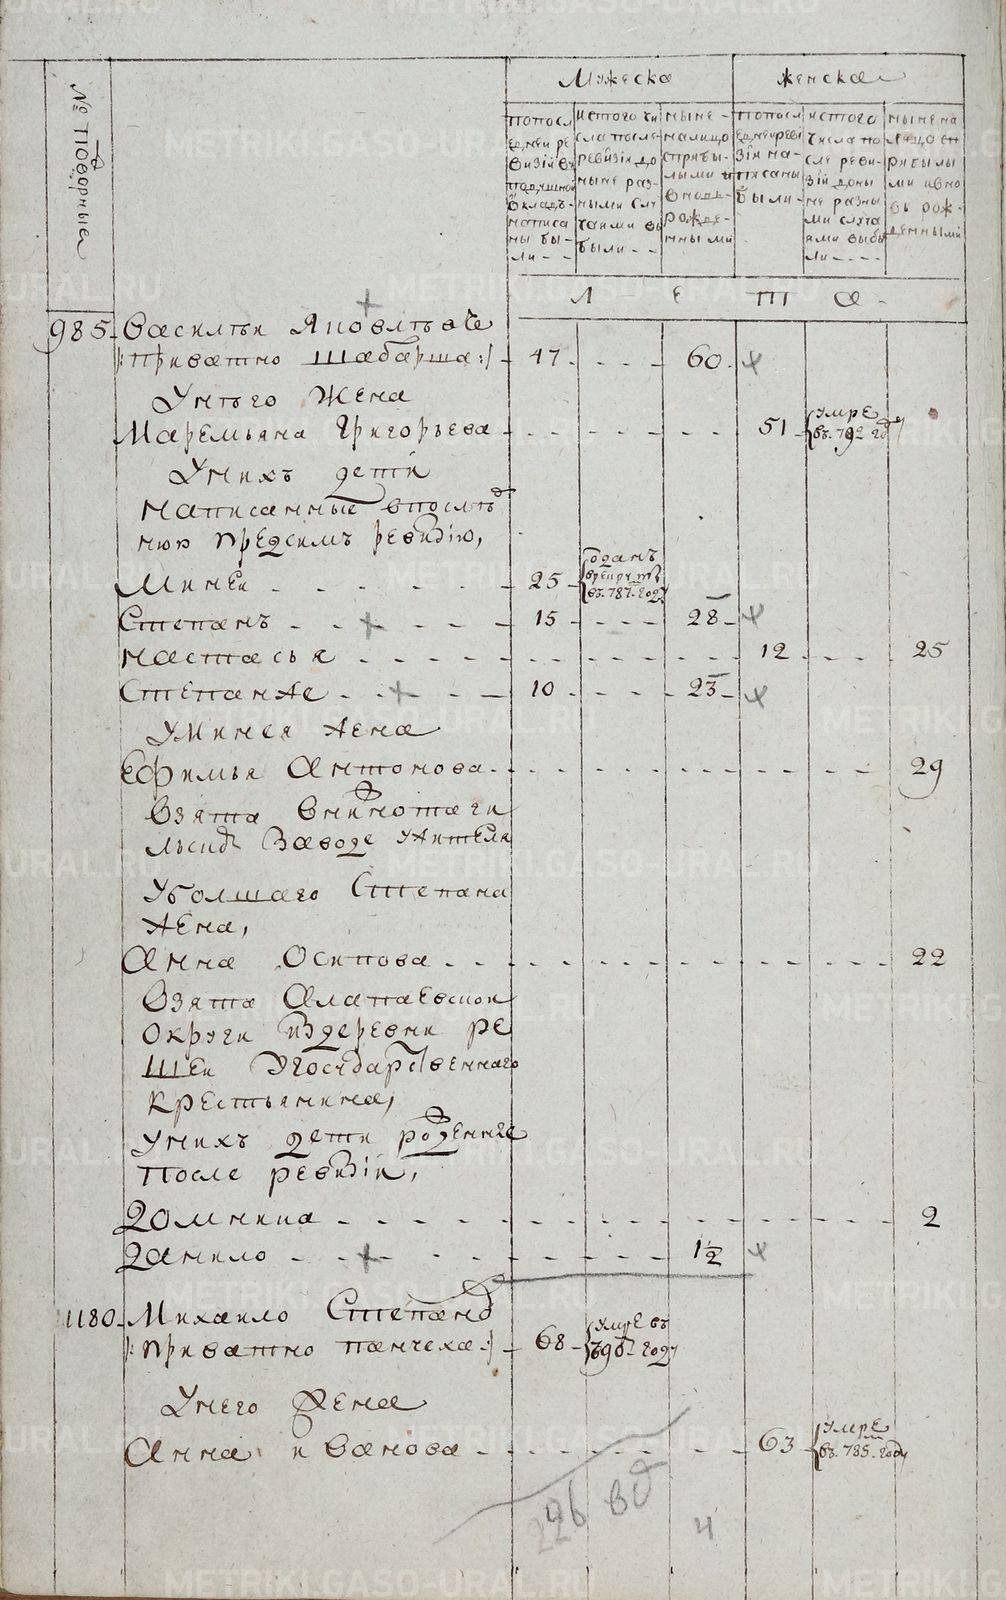 № Подворные
Мужеска
Женска
попосл
едней ре
визій въ
подушной
окладъ
написа
ны бы-
ли - -
истого чи
сла после
ревизіи до
ныне раз-
ными слу
чаями вы
были - -
ныне-
налицо
сприбы-
лыми и
вновь-
рожде-
нными
попосл
едней реви
зіи на-
писаны
были-
истого
числа по
сле реви-
зіи доны
не разны
ми случа
ями выбы
ли - - -
ныне на
лицо сп
рибылы
ми ивно
вь рож-
денными
Л Е Т А
985. Василеи Яковлевъ
/:приватно Шабарша:/ 47 - - - 60
Унего Жена
Маремьяна Григорьева - - - 51 {умре въ. 792. году}
Унихъ дети
написанные впослед
нюю предсимъ ревизію,
Миней - - - 25 {Отданъ врекруты въ. 787. году
Степанъ - - - 15 - - - 28
Настасья - - - 12 - - - 25
Степан же - - - 10 - - - 23
УМинея Жена
Ефимья Антонова - - - 29
Взята внижнотаги
льскомъ Заводе ужителя
Уболшаго Степана
Жена,
Анна Осипова - - - 22
Взята Алапаевской
округи издеревни Ре
шей Угосударственнаго
крестьянина,
унихъ дети рожденные
После ревизіи,
Домника - - - 2
Данило - - - 1½
1180. Михаило Степановъ
/:приватно панчеха:/ - 68 - {умре въ 790 году
Унего Жена
Анна Иванова - - - 63 {умре въ. 785. году
226 вд
4
METRIKI.GASO-URAL.RU